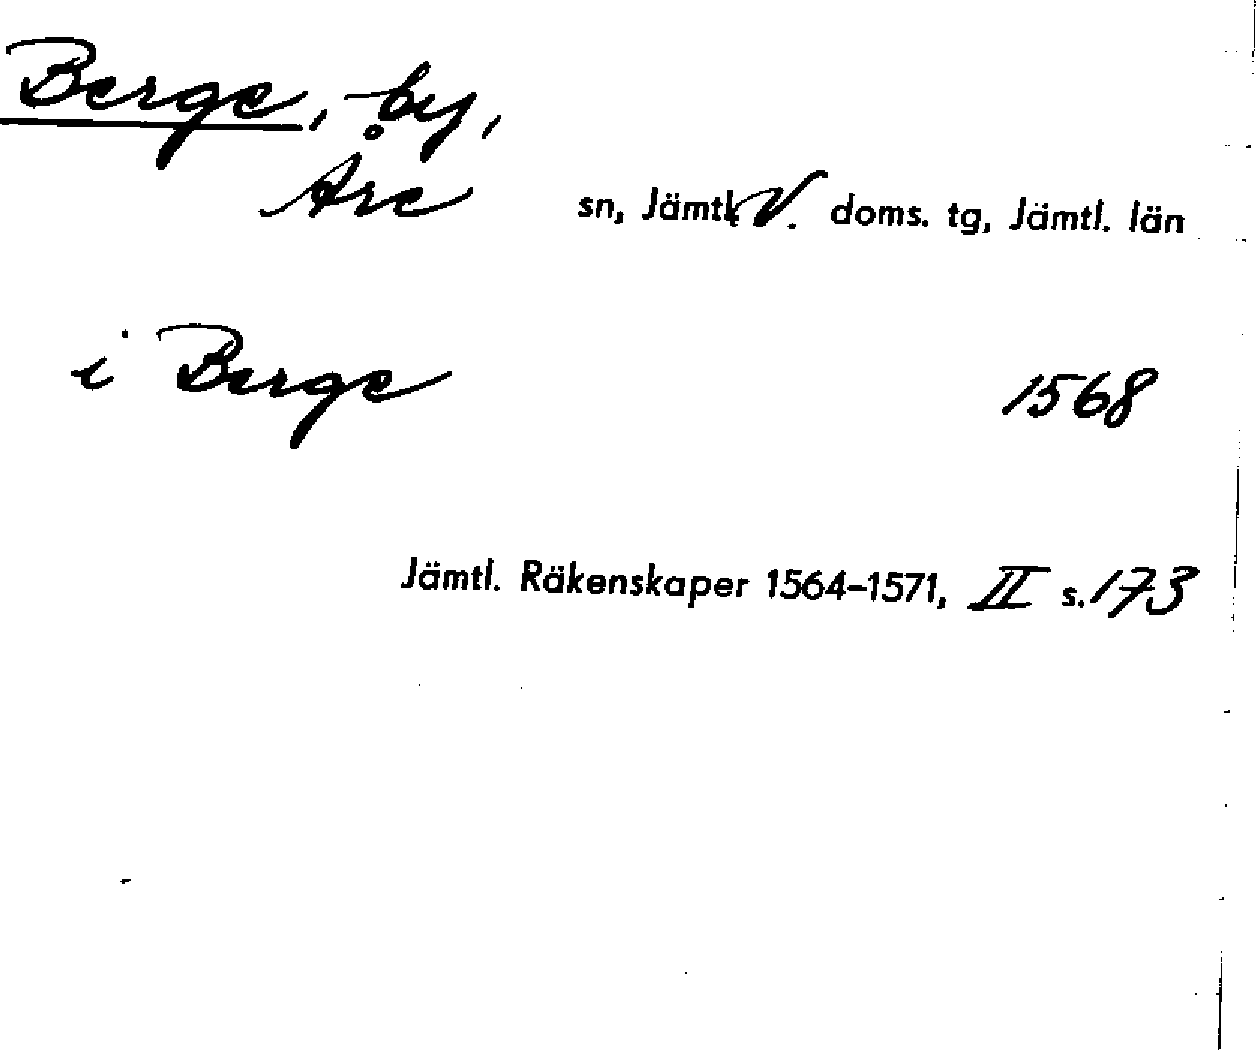 Berge, by,
Åre sn, Jämtl. V. doms. tg, Jämtl. län
i Berge 1568
Jämtl. Räkenskaper 1564-1571, II s. 173